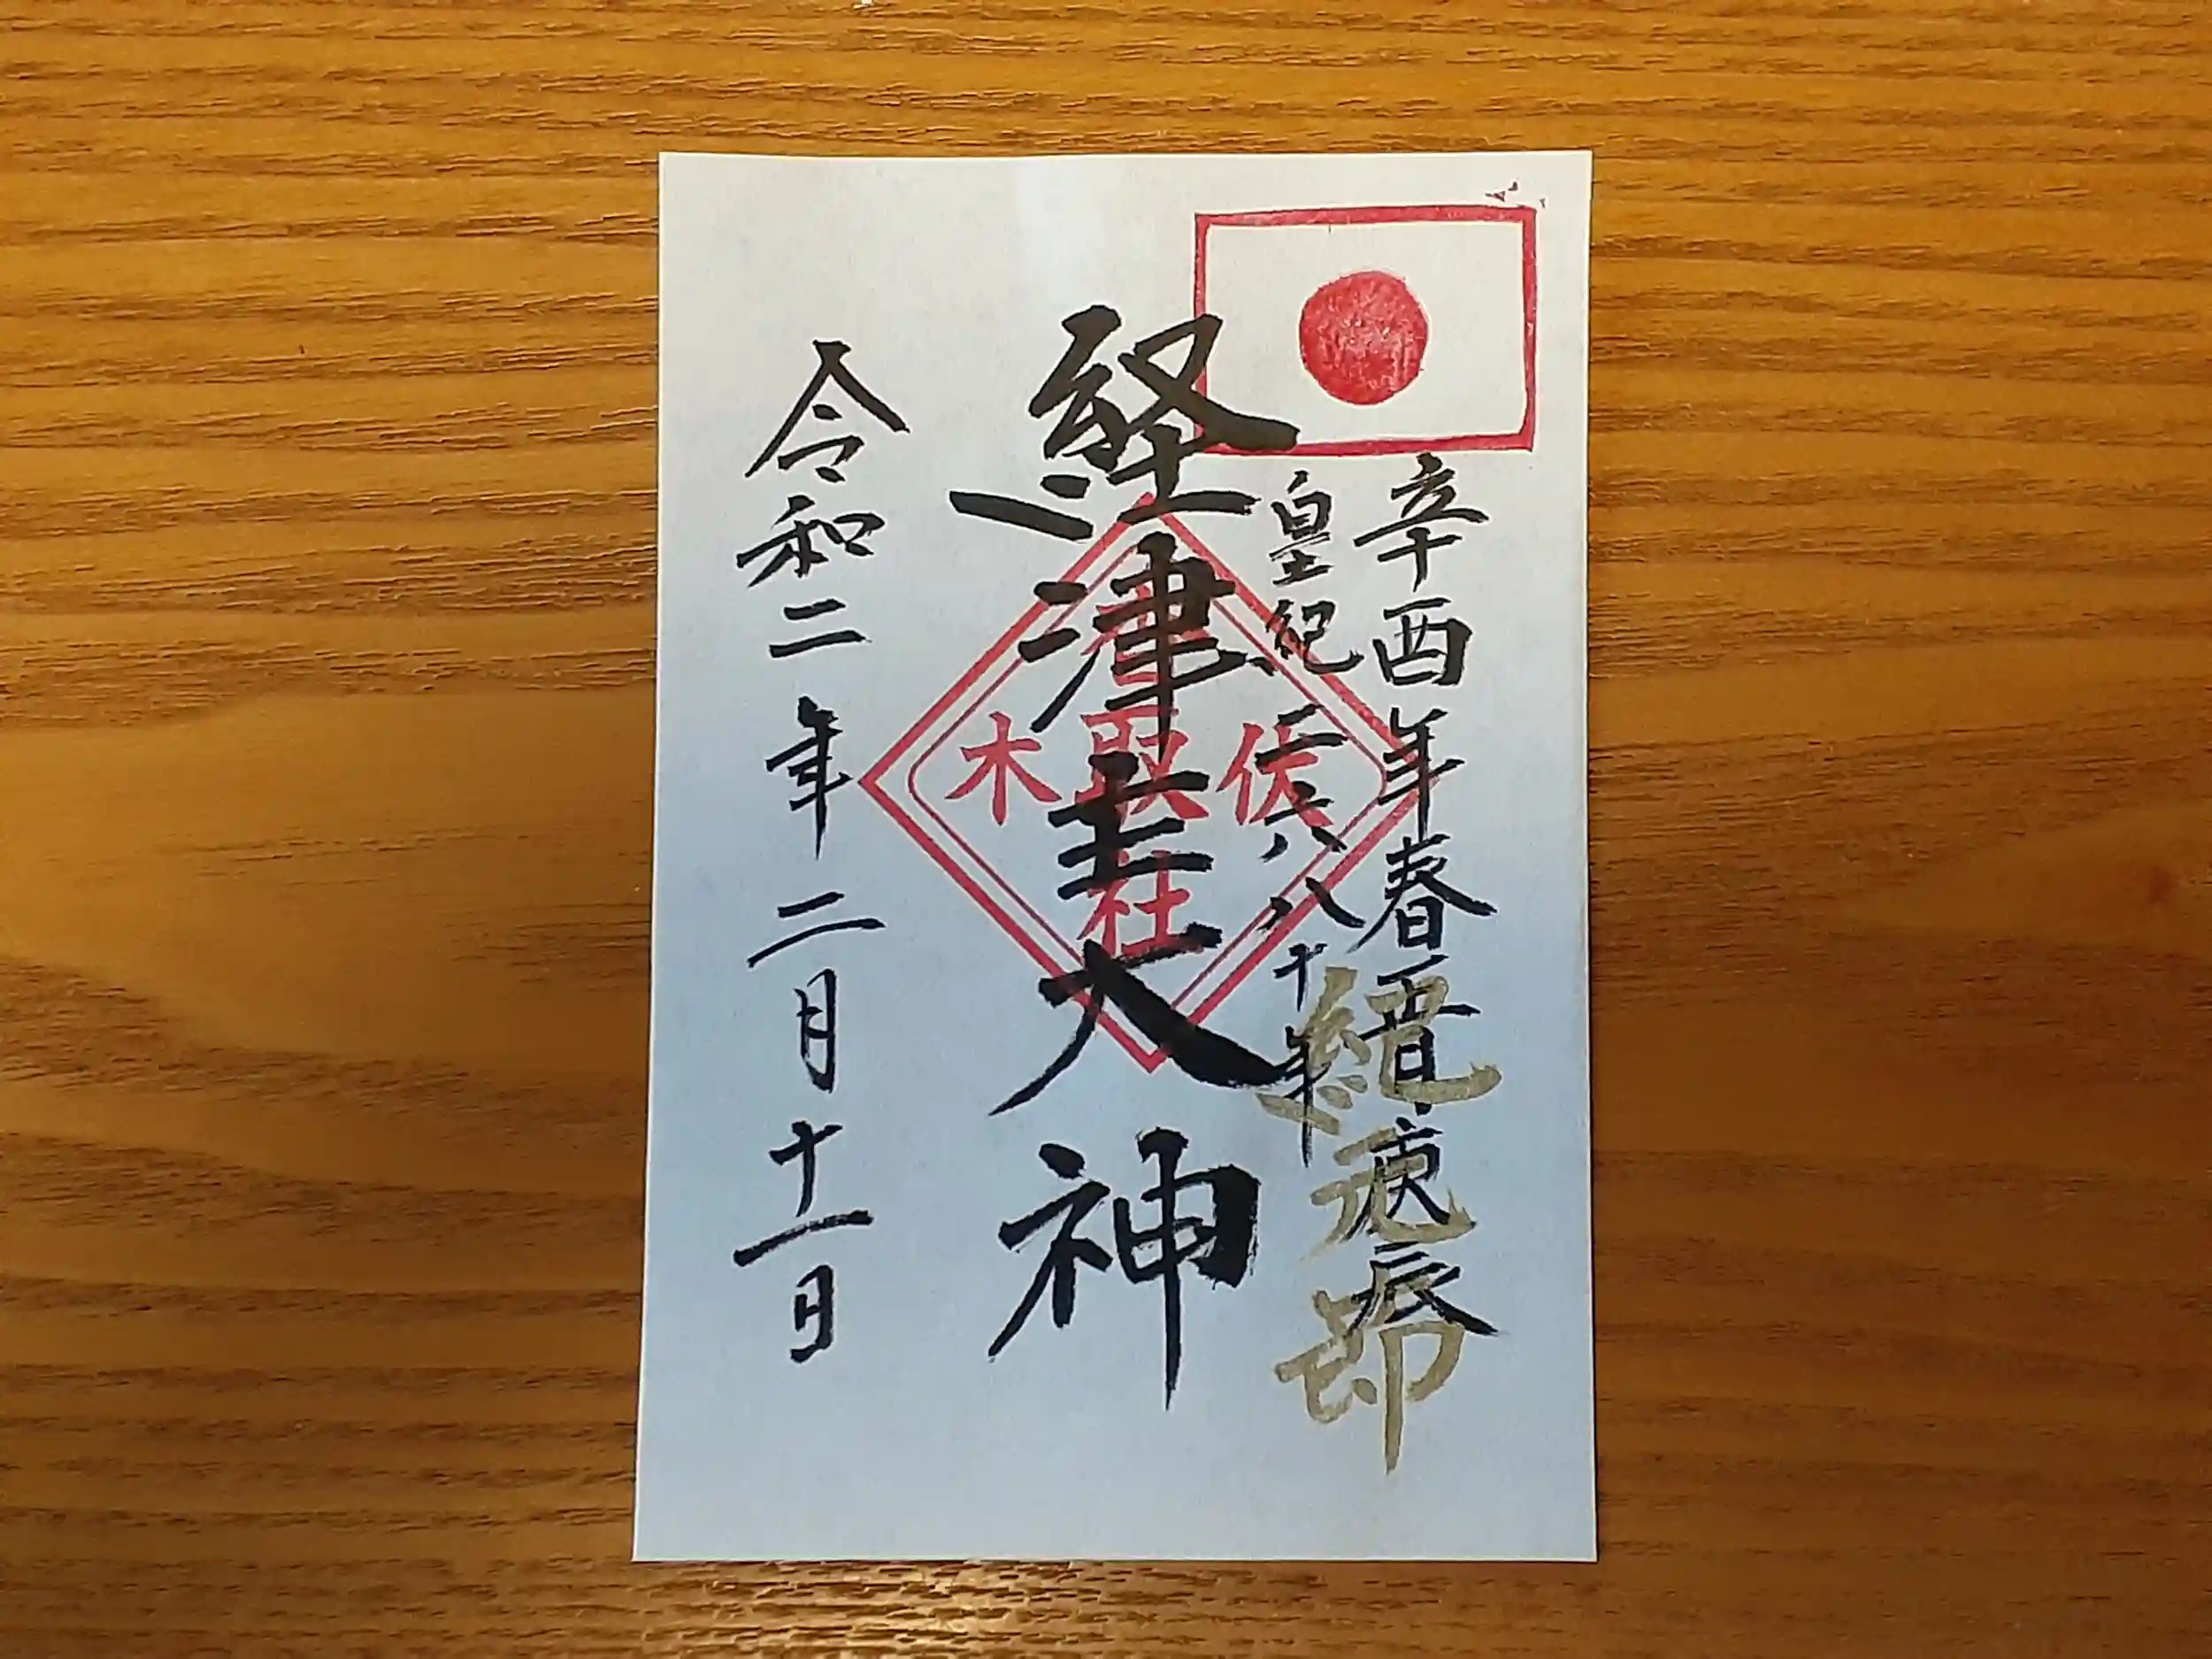 辛酉年春正月庚辰
皇紀二六八十年
紀元節
経津主大神
伏木
取社
令和二年二月十一日